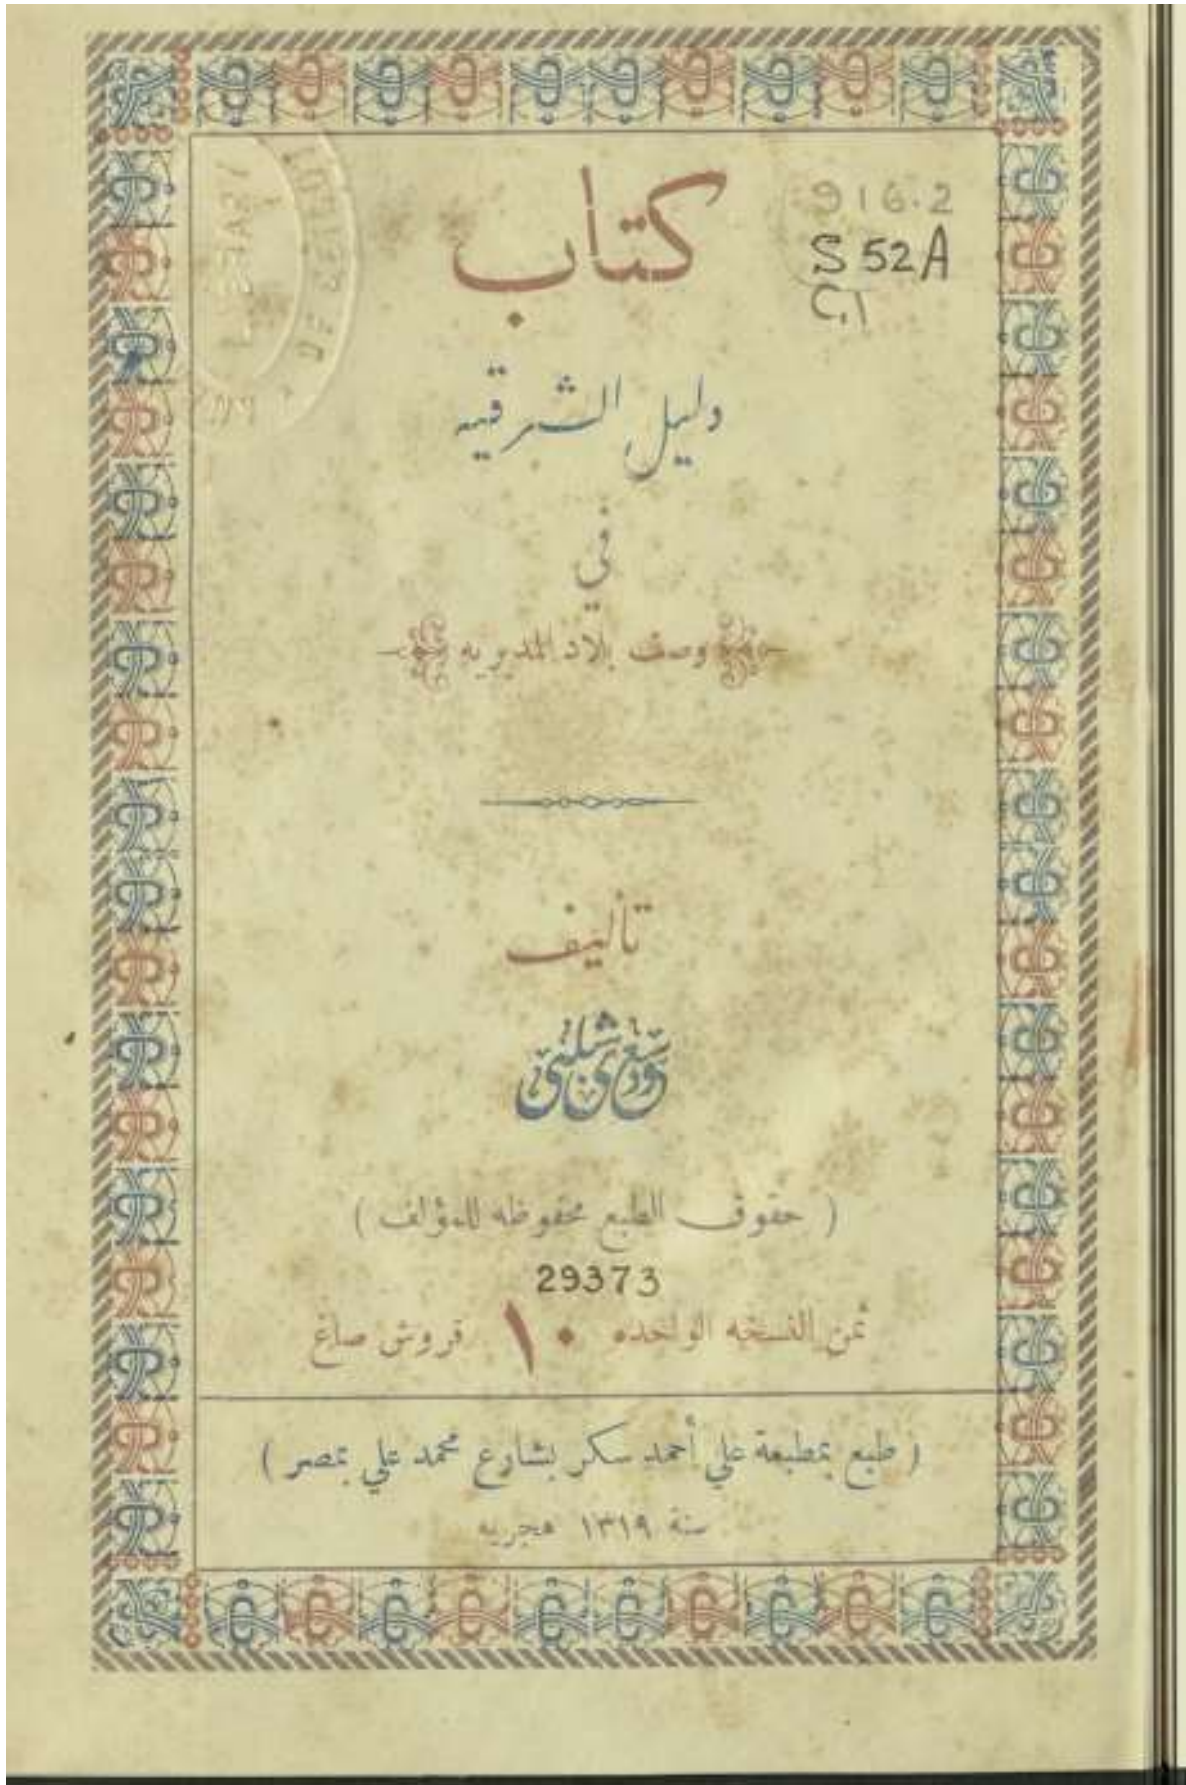 كتاب
916.2
S 52A
C.1
دليل الشرقيه
في
وصف بلاد المديريه
تأليف
شلبي
( حقوق الطبع محفوظه للمؤلف )
29373
ثمن النسخه الواحده ١٠ قروش صاغ
( طبع بمطبعة علي أحمد سكر بشارع محمد علي بمصر )
سنة ١٣١٩ هجريه